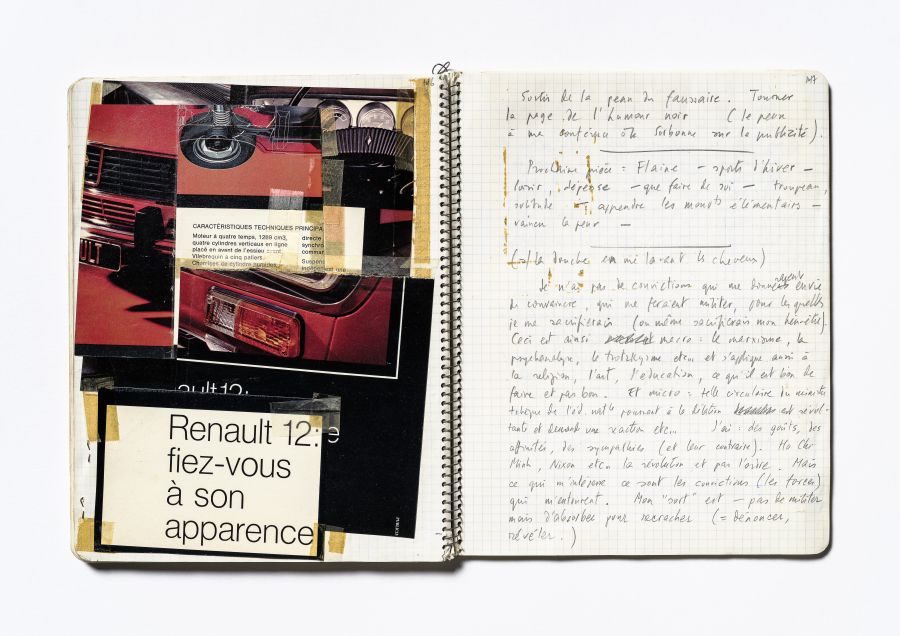 146
CARACTÉRISTIQUES TECHNIQUES PRINCIPA
Moteur à quatre temps, 1289 cm3,
quatre cylindres verticaux en ligne
placé en avant de l'essieu avant.
Vilebrequin à cinq paliers.
Chemises de cylindre humides,
directe
synchro
comman
Suspens
indépendant
ault 12:
Renault 12: e
fiez-vous
à son
apparence
147
Sortir de la peau du faussaire. Tourner
la page de l'humour noir (le peur
à me conférence à la Sorbonne sur la publicité).
Prochaine pièce = Flaine – sports d'hiver –
loisir, dépense – que faire de soi – troupeau,
solitude – apprendre les mouvts élémentaires –
vaincre la peur –
(sous la douche en me lavant les cheveux)
Je n'ai pas de convictions qui me donnent envie
de convaincre, qui me feraient militer, pour lesquelles
je me sacrifierais (ou même sacrifierais mon bien-être).
Ceci est ainsi macro : le marxisme, la
psychanalyse, le trotskysme etc... et s'applique aussi à
la religion, l'art, l'éducation, ce qu'il est bon de
faire et pas bon. Et micro : telle circulaire du ministre
de l'éd. natle poursuit à la délation est révol-
tante et demande une réaction etc... J'ai : des goûts, des
affinités, des sympathies (et leur contraire). Ho Chi
Minh, Nixon etc... la révolution et pas l'ordre. Mais
ce qui m'intéresse ce sont les convictions (les forces)
qui m'entourent. Mon "sort" est – pas de militer
mais d'absorber pour recracher (= dénoncer,
révéler.)